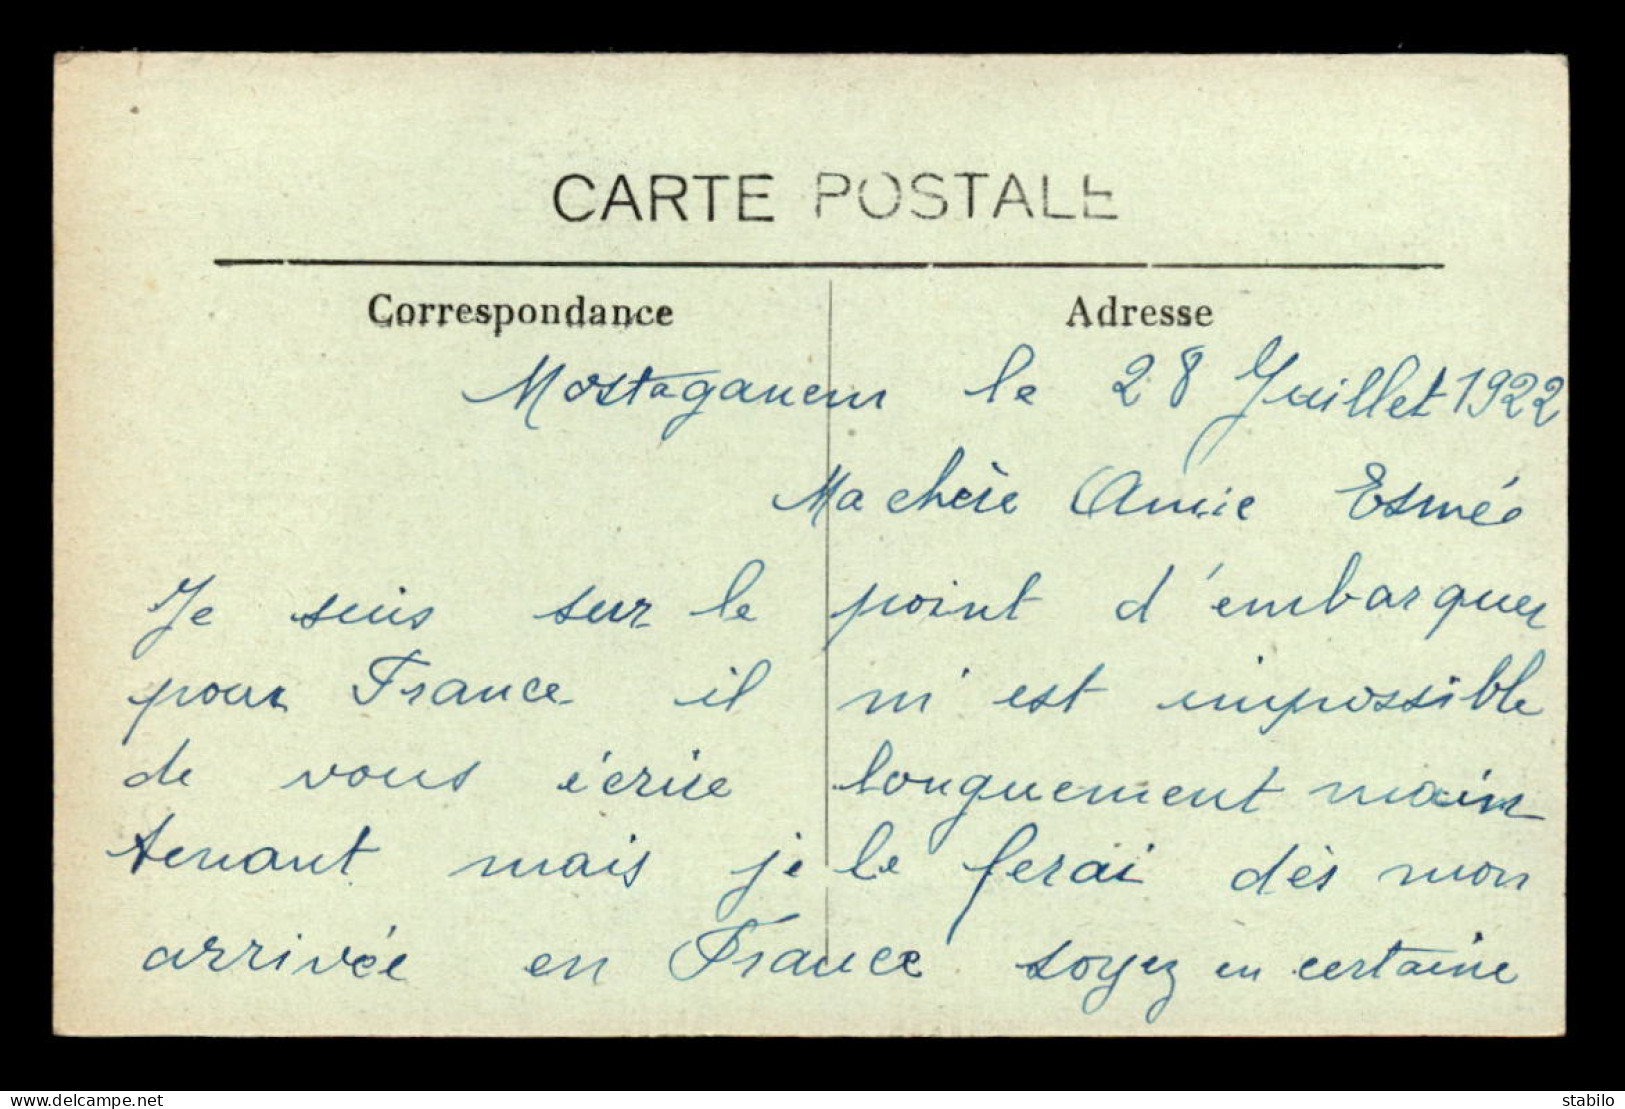 CARTE POSTALE
Correspondance
Adresse
Mostaganem le 28 Juillet 1922
Ma chère Amie Esmée
Je suis sur le point d'embarquer
pour France il m'est impossible
de vous écrire longuement main
tenant mais je le ferai dès mon
arrivée en France soyez en certaine
www.delcampe.net
stabilo